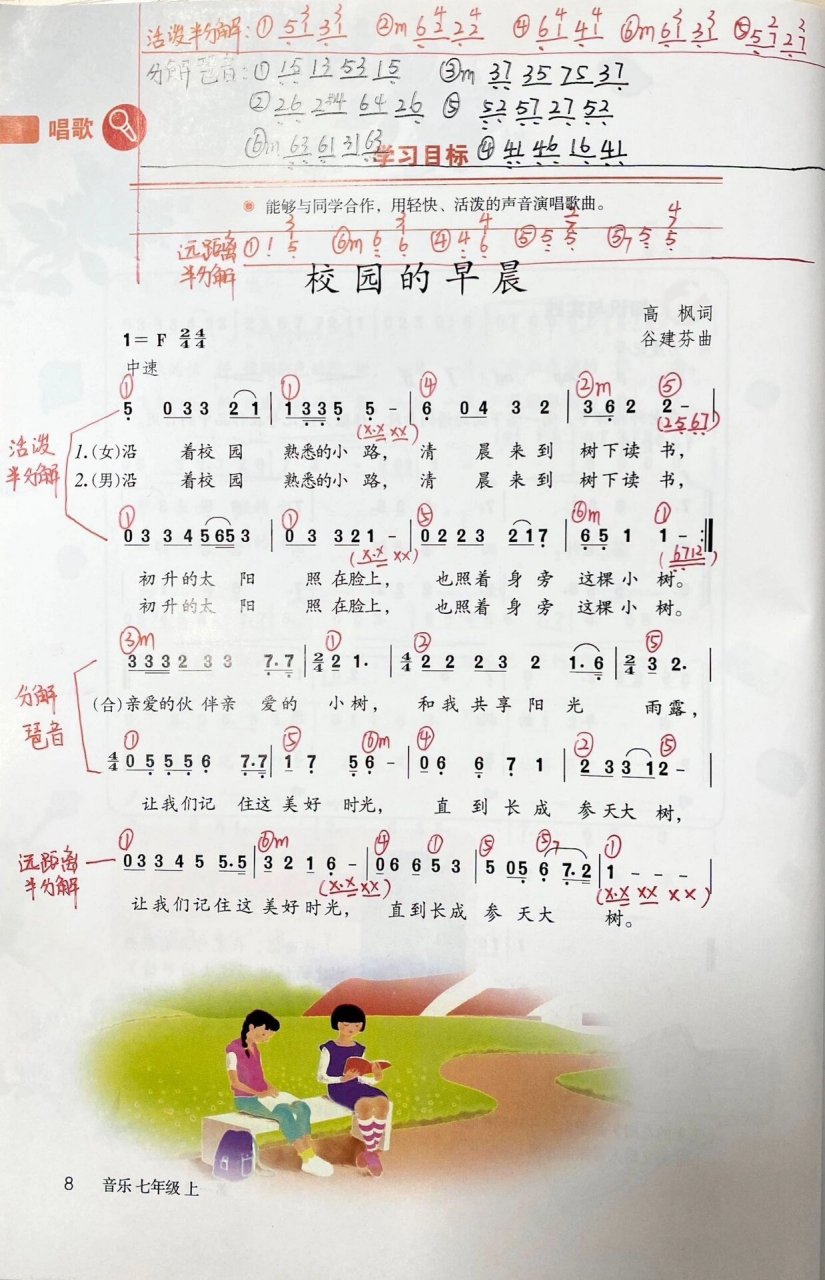 活泼半分解: ① 5 1 3 1 ②m 6 2 2 2 ④ 6 1 4 1 ⑥m 6 1 3 1 ⑤ 5 7 2 7
分解琶音: ① 15 13 53 15 ③m 37 35 75 37
② 26 2 64 26 ⑤ 52 57 27 52
⑥m 63 61 31 63 ④ 41 46 16 41
唱歌
学习目标
能够与同学合作，用轻快、活泼的声音演唱歌曲。
远距离半分解 ① 1 5 ⑥m 6 6 ④ 4 6 ⑤ 5 5 ⑤7 5 5
校园的早晨
高 枫词
1= F 2/4 4/4
谷建芬曲
中速
① ① ④ ②m ⑤
5 0 3 3 2 1 | 1 3 3 5 5 - | 6 0 4 3 2 | 3 6 2 2 - |
(x.x xx) (2567)
活泼半分解
1.(女)沿 着校 园 熟悉的小 路， 清 晨 来 到 树下读 书，
2.(男)沿 着校 园 熟悉的小 路， 清 晨 来 到 树下读 书，
① ① ⑤ ⑥m ①
0 3 3 4 5 65 3 | 0 3 3 2 1 - | 0 2 2 3 2 1 7 | 6 5 1 1 - :‖
(x.x xx) (6712)
初升的太 阳 照 在脸上， 也照着 身 旁 这棵小 树。
初升的太 阳 照 在脸上， 也照着 身 旁 这棵小 树。
③m ① ② ⑤
3 3 3 2 3 3 7. 7 | 2/4 2 1. | 4/4 2 2 2 3 2 1. 6 | 2/4 3 2. |
分解琶音
(合)亲爱的伙 伴亲 爱的 小树， 和我 共享 阳 光 雨露，
① ⑤ ⑥m ④ ② ⑤
4/4 0 5 5 5 6 7. 7 | 1 7 5 6 - | 0 6 6 7 1 | 2 3 3 1 2 - |
让我们记 住这 美好 时光， 直 到 长 成 参天大 树，
① ⑥m ④ ① ⑤ ⑤7 ①
远距离半分解
0 3 3 4 5 5. 5 | 3 2 1 6 - | 0 6 6 5 3 | 5 0 5 6 7. 2 | 1 - - - ‖
(x.x xx) (x.x xx x x)
让我们记住这 美好时光， 直到长成 参 天大 树。
8 音乐 七年级 上